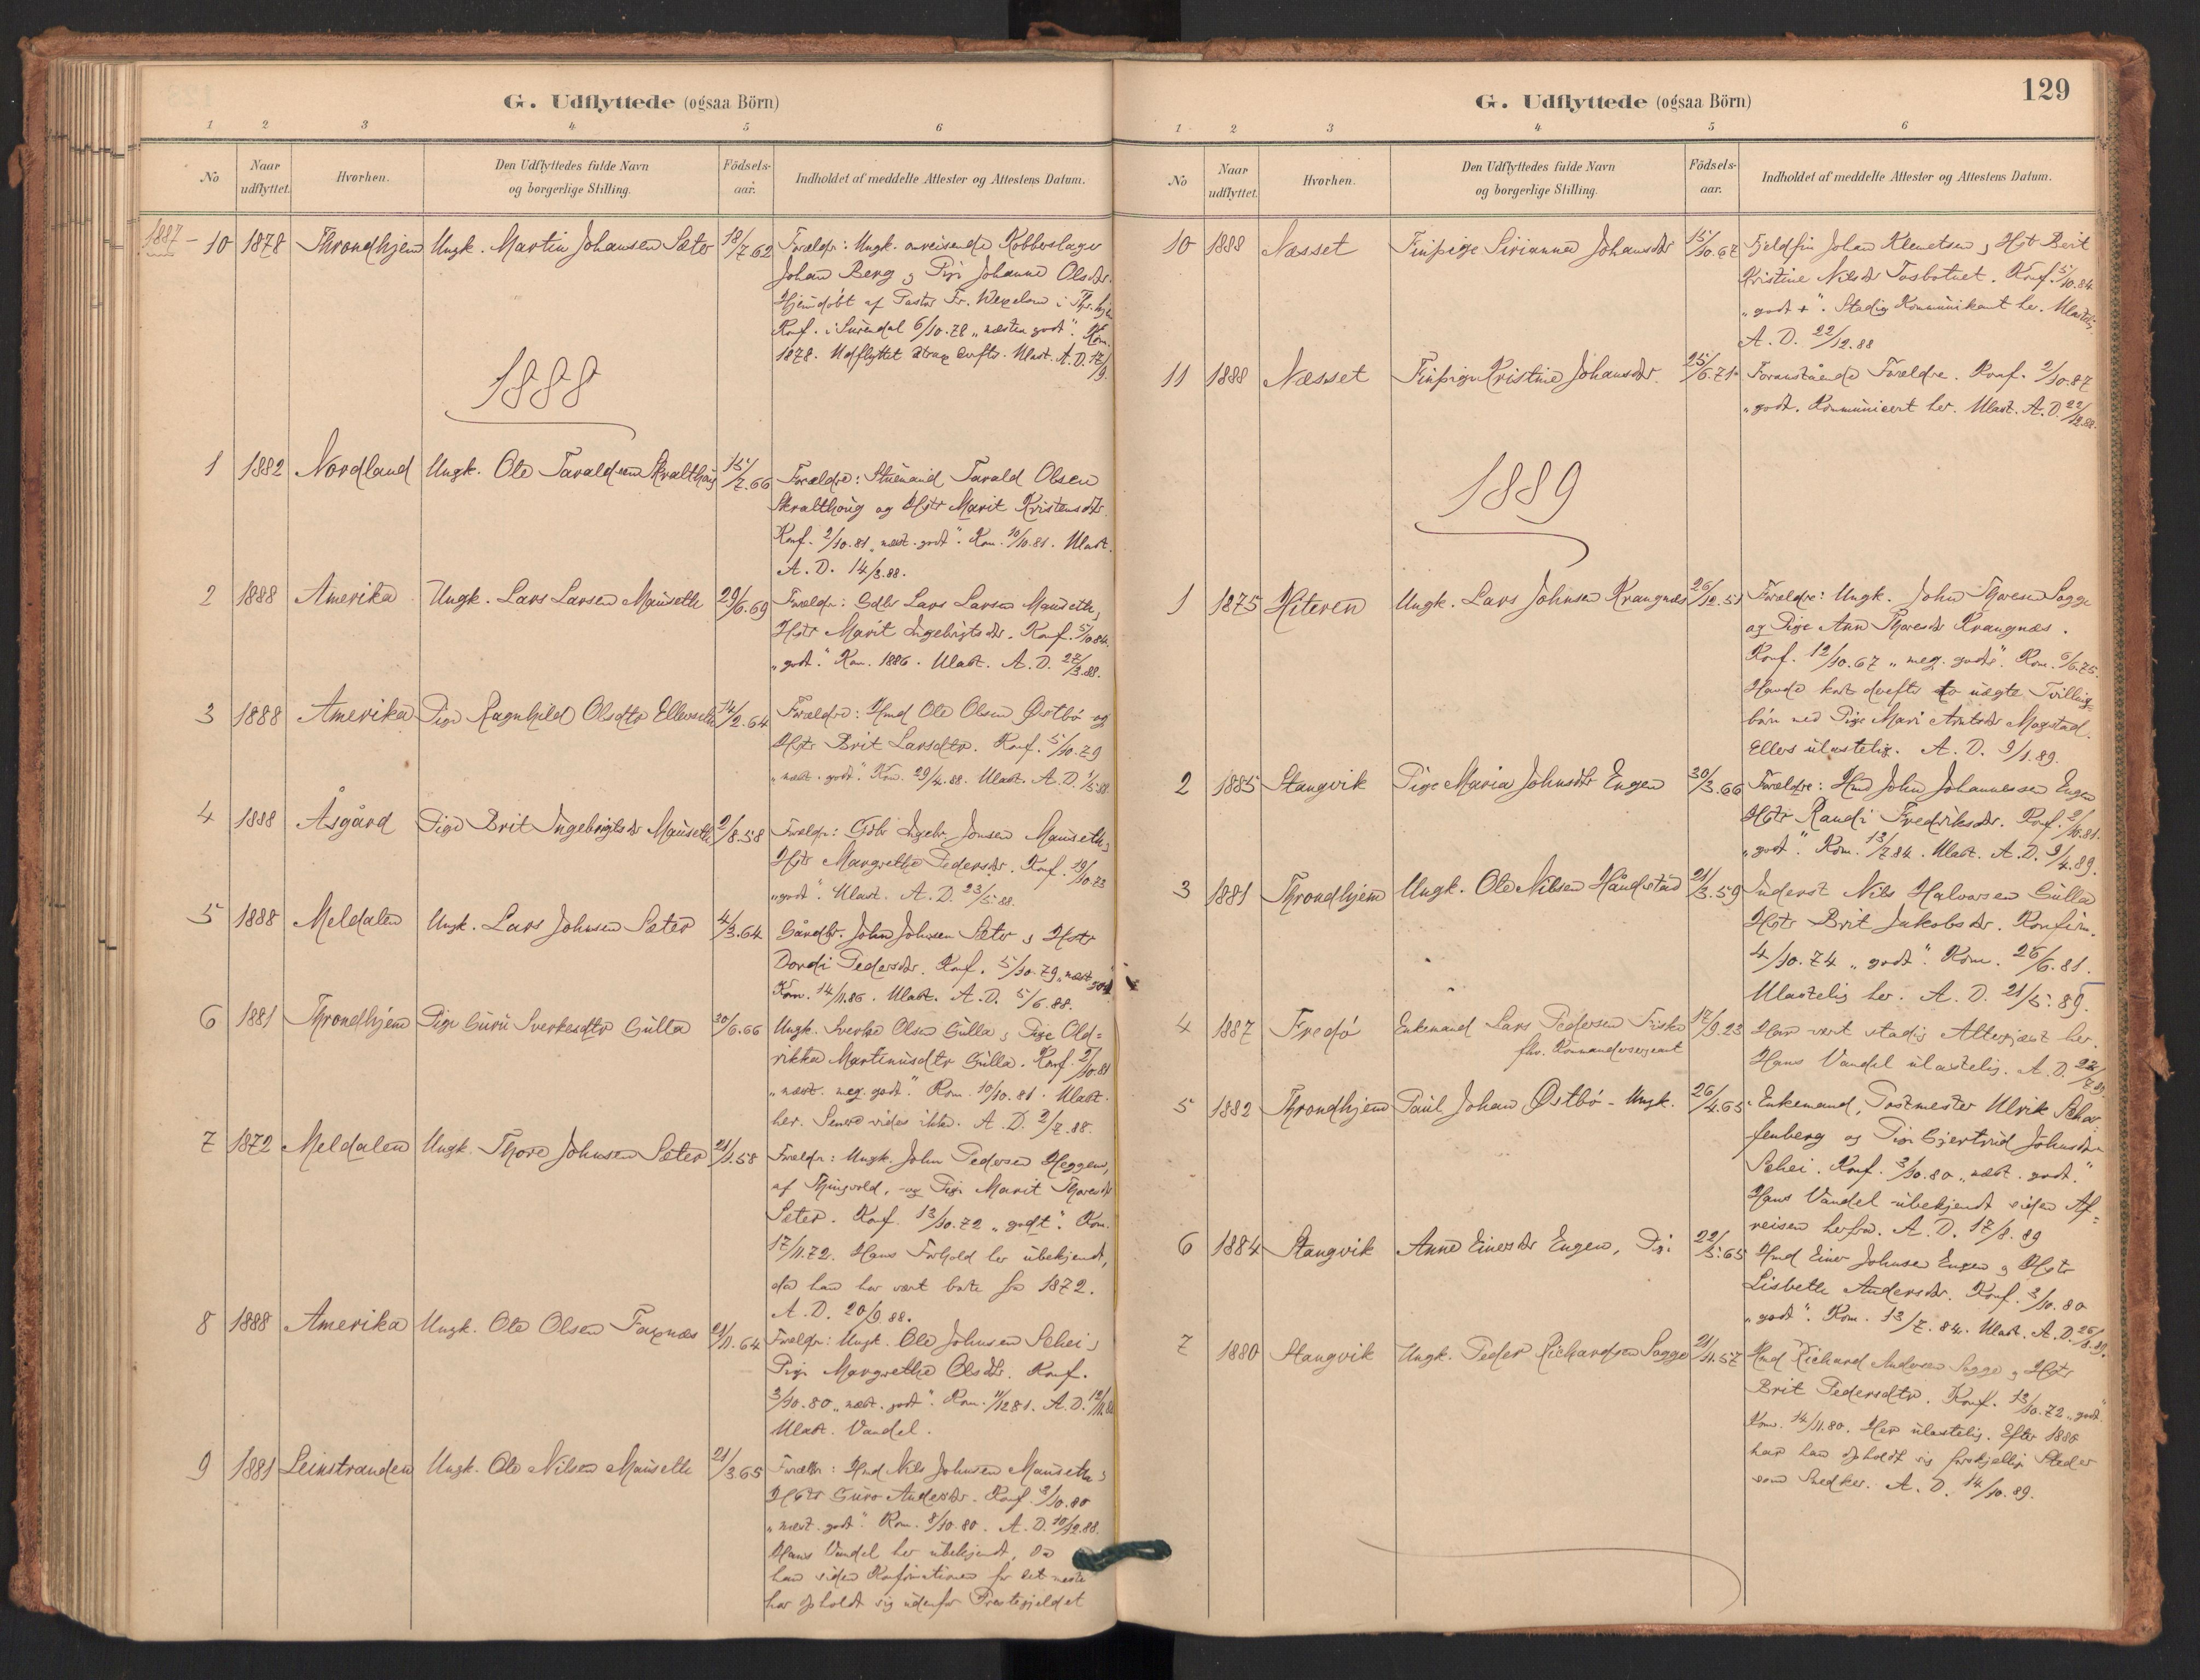 G. Udflyttede (ogsaa Börn)
1 2 3 4 5 6
No
Naar udflyttet.
Hvorhen.
Den Udflyttedes fulde Navn og borgerlige Stilling.
Födsels-aar.
Indholdet af meddelte Attester og Attestens Datum.
1887 - 10 1878 Throndhjem Ungk. Martin Johansen Sæter 18/7.62 Forældr: Ungk. omreisende Kobberslager
Johan Berg og Pige Johanne Olsdtr.
Hjemdöbt af Pastor Fr. Wexelsen i Thr.hjm
Konf. i Surendal 6/10.78 „næsten godt". Kom.
1878. Udflyttet strax derefter. Ulast. A.D. 17/9.
1888
1 1882 Nordland Ungk. Ole Taraldsen Skralthoug 15/7.66 Forældre: Stuemand Tarald Olsen
Skralthoug og Hstr Marit Kristensdtr.
Konf. 2/10.81 „næst. godt". Kom. 10/10.81. Ulast.
A.D. 14/3.88.
2 1888 Amerika Ungk. Lars Larsen Mauseth 29/6.69 Forældr: Gdbr Lars Larsen Mauseth,
Hstr Marit Ingebrigtsdtr. Konf. 5/10.84.
„godt." Kom. 1886. Ulast. A.D. 27/3.88.
3 1888 Amerika Pige Ragnhild Olsdtr Ellevseth 14/2.64 Forældre: Hmd Ole Olsen Østbö og
Hstr Brit Larsdtr. Konf. 5/10.79
„næst. godt." Kom. 29/4.88. Ulast. A.D. 1/5.88.
4 1888 Åsgård Pige Brit Ingebrigtsdr Mauseth 2/8.58 Forældr: Gdbr Ingebr. Jonsen Mauseth,
Hstr Margrethe Pedersdtr. Konf. 19/10.73
„godt". Ulast. A.D. 23/5.88.
5 1888 Meldalen Ungk. Lars Johnsen Sæter 4/3.64 Gårdbr. John Johnsen Sæter og Hstr
Dordi Pedersdtr. Konf. 5/10.79 „næst godt."
Kom. 14/11.86. Ulast. A.D. 5/6.88.
6 1881 Throndhjem Pige Guru Sverkesdtr Gulla 30/6.66 Ungk. Sverke Olsen Gulla og Pige Old=
rikka Martinusdtr Gulla. Konf. 2/10.81
„næst. meg. godt." Kom. 10/10.81. Ulast.
her. Senere vides ikke. A.D. 2/7.88.
7 1872 Meldalen Ungk. Thore Johnsen Sæter 21/1.58 Forældr: Ungk. John Pedersen Heggem,
af Thingvold, og Pige Marit Thoresdtr
Sæter. Konf. 13/10.72 „godt". Kom.
17/11.72. Hans Forhold her ubekjendt,
da han har vært borte fra 1872.
A.D. 20/9.88.
8 1888 Amerika Ungk. Ole Olsen Faxnæs 21/11.64 Forældr: Ungk. Ole Johnsen Schei,
Pige Margrethe Olsdtr. Konf.
3/10.80 „næst. godt". Kom. 11/12 81. A.D. 12/11.88
Ulast. Vandel.
9 1881 Leinstranden Ungk. Ole Nilsen Mauseth 21/3.65 Forældr: Hmd Nils Johnsen Mauseth,
Hstr Guro Andersdtr. Konf. 3/10.80
„næst. godt." Kom. 8/10.80. A.D. 10/12.88.
Hans Vandel her ubekjendt, da
han siden Konfirmationen for det meste
har opholdt sig udenfor Præstegjeldet
G. Udflyttede (ogsaa Börn)
129
1 2 3 4 5 6
No
Naar udflyttet.
Hvorhen.
Den Udflyttedes fulde Navn og borgerlige Stilling.
Födsels-aar.
Indholdet af meddelte Attester og Attestens Datum.
10 1888 Næsset Finpige Sirianna Johansdtr 15/10.67 Fjeldfin Johan Klemetsen, Hstr Berit
Kristine Nilsdtr Tosbotnet. Konf. 5/10.84
„godt +". Stadig Kommunikant her. Ulastelig.
A.D. 22/12.88
11 1888 Næsset Finpige Kristine Johansdtr. 25/6.71 Foranstående Forældre. Konf. 2/10.87
„godt. Kommunicert her. Ulast. A.D. 22/12.88.
1889
1 1875 Hiteren Ungk. Lars Johnsen Krangnæs 26/12.51 Forældre: Ungk. John Thoresen Sogge
og Pige Ane Thoresdtr Krangnæs.
Konf. 12/10.67 „meg. godt". Kom. 6/6.75.
Havde kort derefter to uægte Tvilling=
börn med Pige Mari Arntsdr Mogstad.
Ellers ulastelig. A.D. 9/1.89.
2 1885 Stangvik Pige Maria Johnsdtr Engen 30/3.66 Forældre: Hmd John Johannessen Engen
Hstr Randi Fredriksdr. Konf. 2/10.81.
„godt". Kom. 13/7 84. Ulast. A.D. 9/4.89.
3 1881 Throndhjem Ungk. Ole Nilsen Håndstad 21/3.59 Inderst Nils Halvorsen Gulla
Hstr Brit Jakobsdr. Konfirm.
4/10.74 „godt". Kom. 26/6.81.
Ulastelig her. A.D. 21/5.89.
4 1887 Fredö Enkemand Lars Pedersen Fiske 17/9.23 Har vært stadig Altergjæst her.
fhv. Kommandersergeant
Hans Vandel ulastelig. A.D. 22/7.89
5 1882 Throndhjem Paul Johan Østbö - Ungk. 26/4.65 Enkemand, Postmester Ulrik Schar=
fenberg og Pige Gjertrud Johnsdtr
Schei. Konf. 3/10.80 „næst. godt."
Hans Vandel ubekjendt siden Af=
reisen herfra. A.D. 17/8.89
6 1884 Stangvik Anne Einersdtr Engen, Pi: 22/5.65 Hmd Einer Johnsen Engen og Hstr
Lisbeth Andersdtr. Konf. 3/10.80
„godt". Kom. 13/7.84. Ulast. A.D. 26/8.89.
7 1880 Stangvik Ungk. Peder Richardsen Sogge 21/4.57 Hmd Richard Andersen Sogge og Hstr
Brit Pedersdtr. Konf. 13/10.72 „godt".
Kom. 14/11.80. Her ulastelig. Efter 1880
har han opholdt sig forskjellige Steder
som Snedker. A.D. 14/10.89.